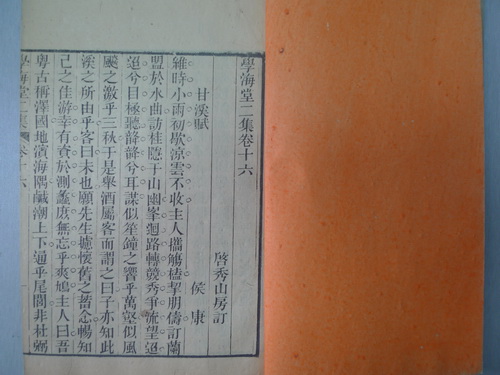 學海堂二集卷十六
啓秀山房訂
甘溪賦
侯康
維時小雨初歇涼雲不收主人攜觴榼挈朋儔訂蘭
盟於水曲訪桂隱于山幽峯迴路轉競秀爭流望迢
迢兮目極聽絳絳兮耳謀似笙鐘之響乎萬壑似風
飇之激乎三秋于是舉酒屬客而謂之曰子亦知此
溪之所由乎客曰未也願先生攄懷舊之蓄念暢知
己之佳游幸有資於測蠡庶無忘乎爽鳩主人曰吾
粵古稱澤國地濱海隅鹹潮上下通乎尾閭非杜弼
學海堂二集 卷十六